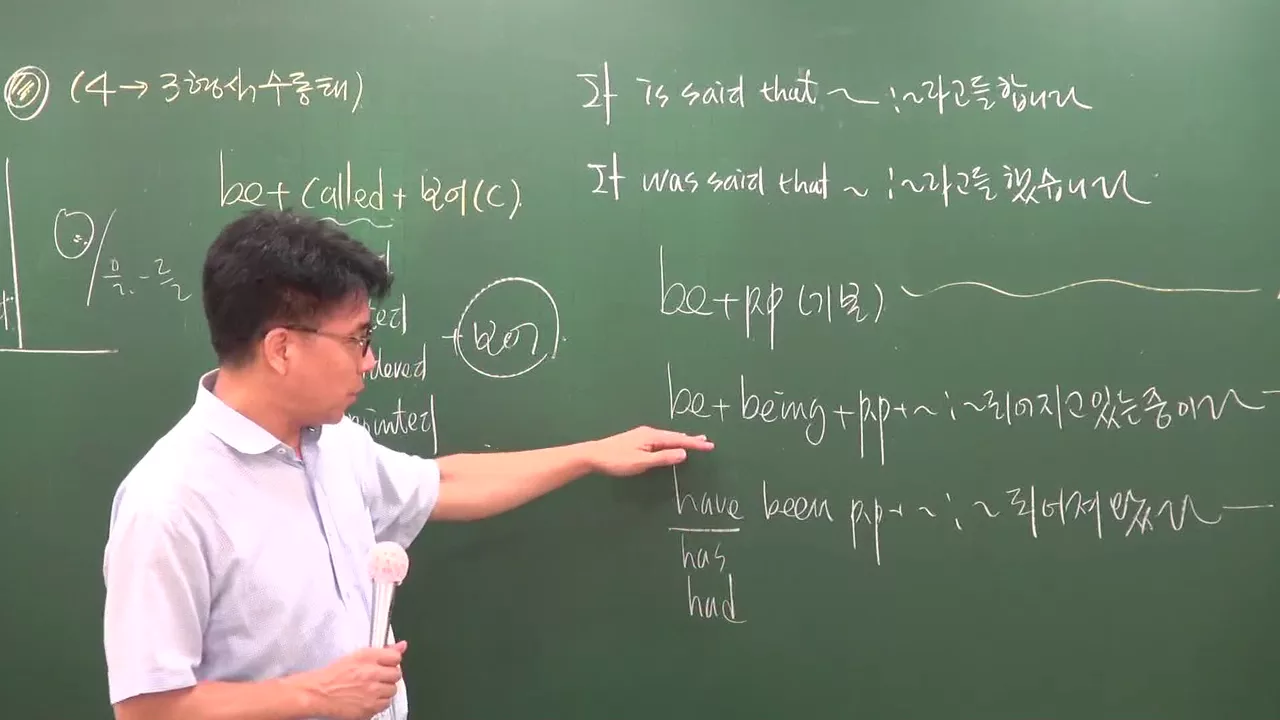 (4→3형식수동태)
be+called+보어(C).
+보어
It is said that ~ :~라고들합니다
It was said that ~ :~라고들했습니다.
be+p.p (기본)
be+being+p.p+~ :~되어지고있는중이다
have been p.p+~ :~되어져왔다
has
had